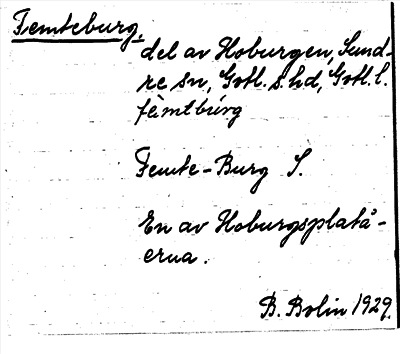 Femteburg.
del av Hoburgen, Sund-
re sn, Gotl. s. hd, Gotl. l.
fèmtbúrg
Femte-Burg S.
En av Hoburgsplatå-
erna.
B. Bolin 1929.